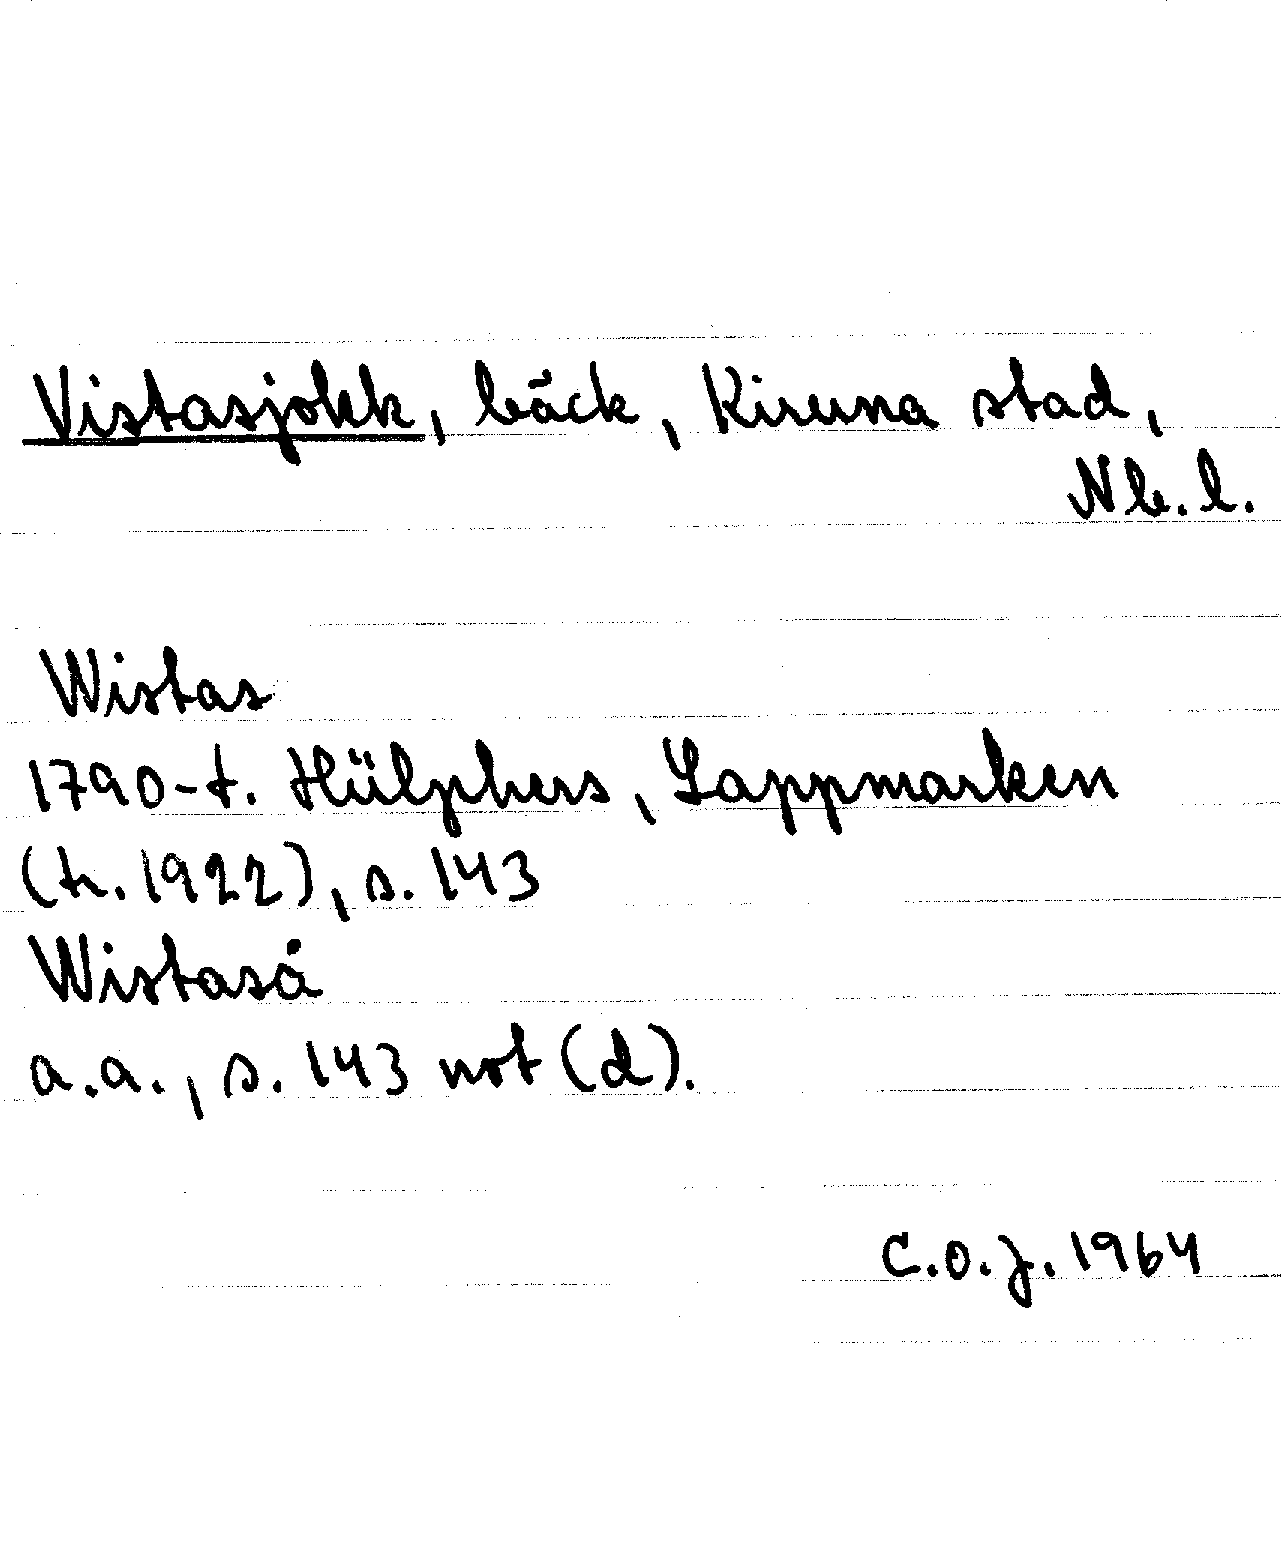 Vistasjokk, bäck, Kiruna stad,
Nb. l.
Wistas
1790-t. Hülphers, Lappmarken
(tr. 1922), s. 143
Wistaså
a.a., s. 143 not (d).
C.O.J. 1964